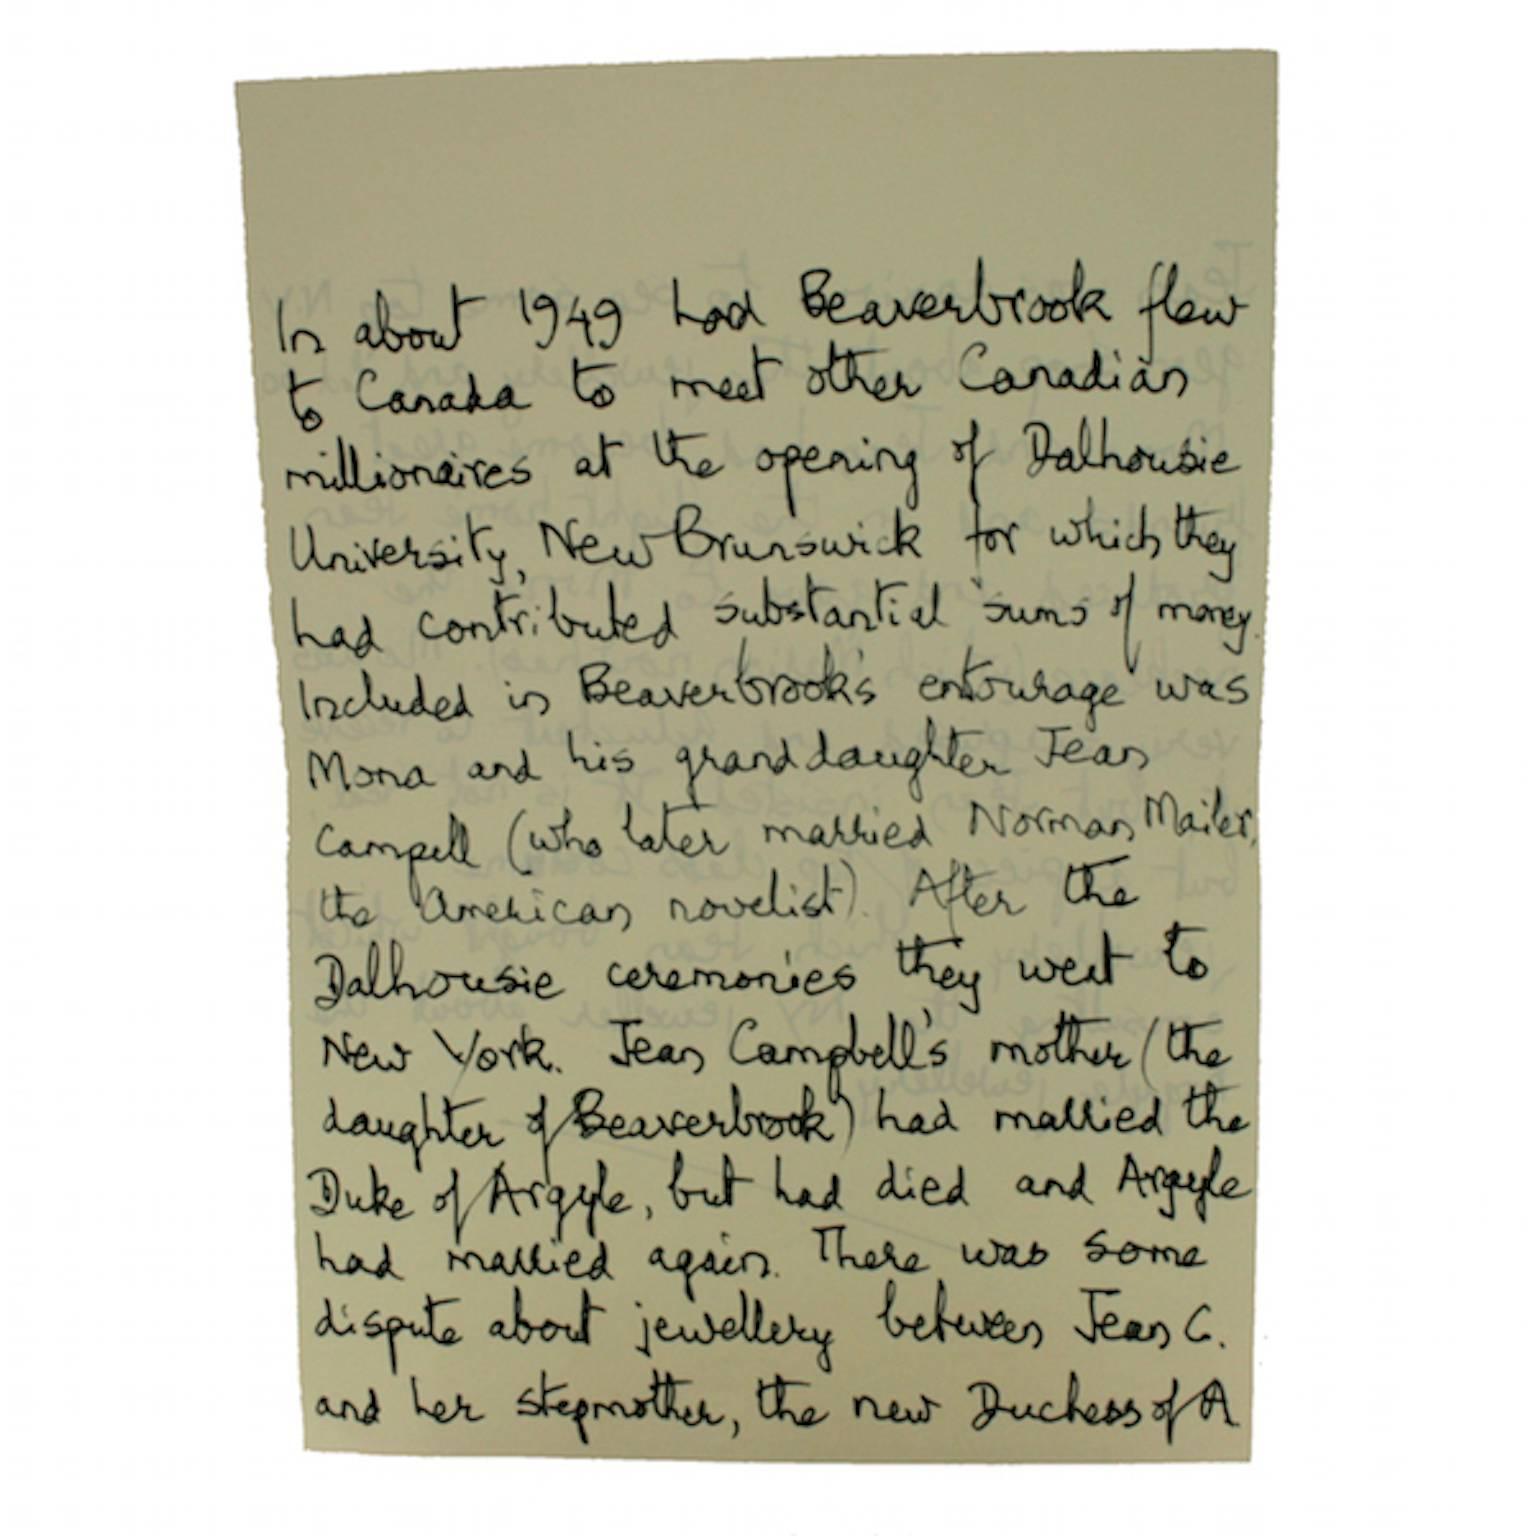 In about 1949 Lord Beaverbrook flew
to Canada to meet other Canadian
millionaires at the opening of Dalhousie
University, New Brunswick for which they
had contributed substantial sums of money.
Included in Beaverbrook's entourage was
Mona and his granddaughter Jean
Campell (who later married Norman Mailer,
the American novelist). After the
Dalhousie ceremonies they went to
New York. Jean Campbell's mother (the
daughter of Beaverbrook) had married the
Duke of Argyle, but had died and Argyle
had married again. There was some
dispute about jewellery between Jean C.
and her stepmother, the new Duchess of A